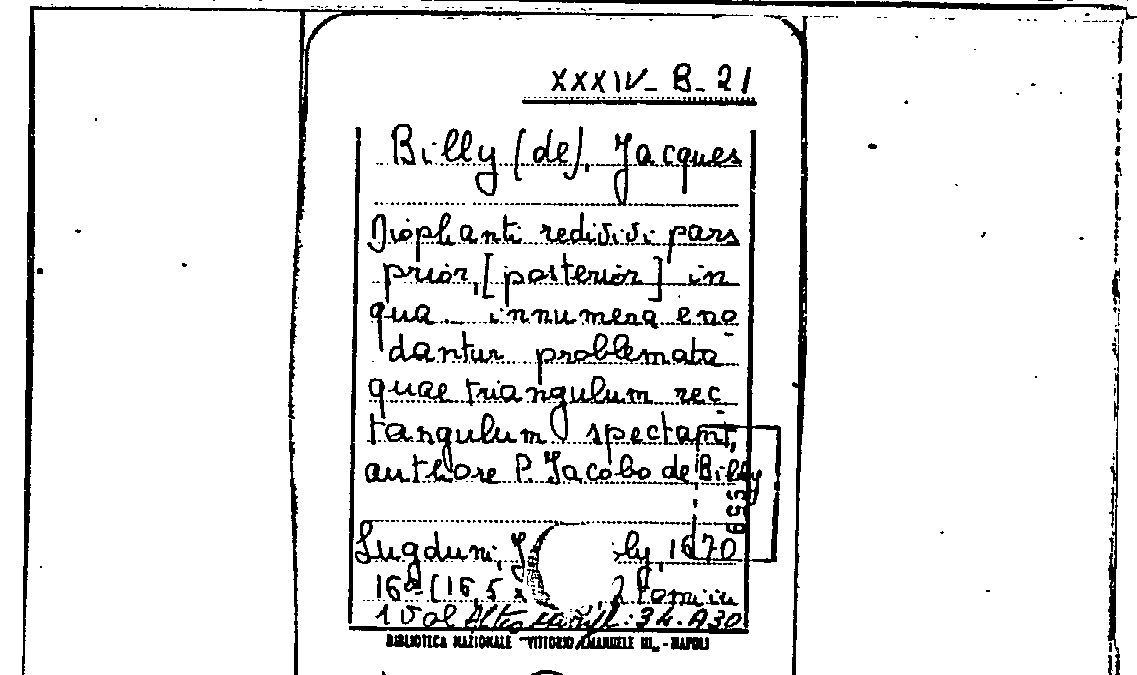 XXXIV_ B_ 21
Billy (de), Jacques
Diophanti redivivi pars
prior, [posterior] in
qua... innumera eno
dantur problemata
quae triangulum rec
tangulum spectant,
authore P. Jacobo de Billy
Lugduni, J ly, 1670
16° (16,5 x 2 tomi in
1 vol Altro : 34. A 30
BIBLIOTECA NAZIONALE "VITTORIO EMANUELE III„ - NAPOLI